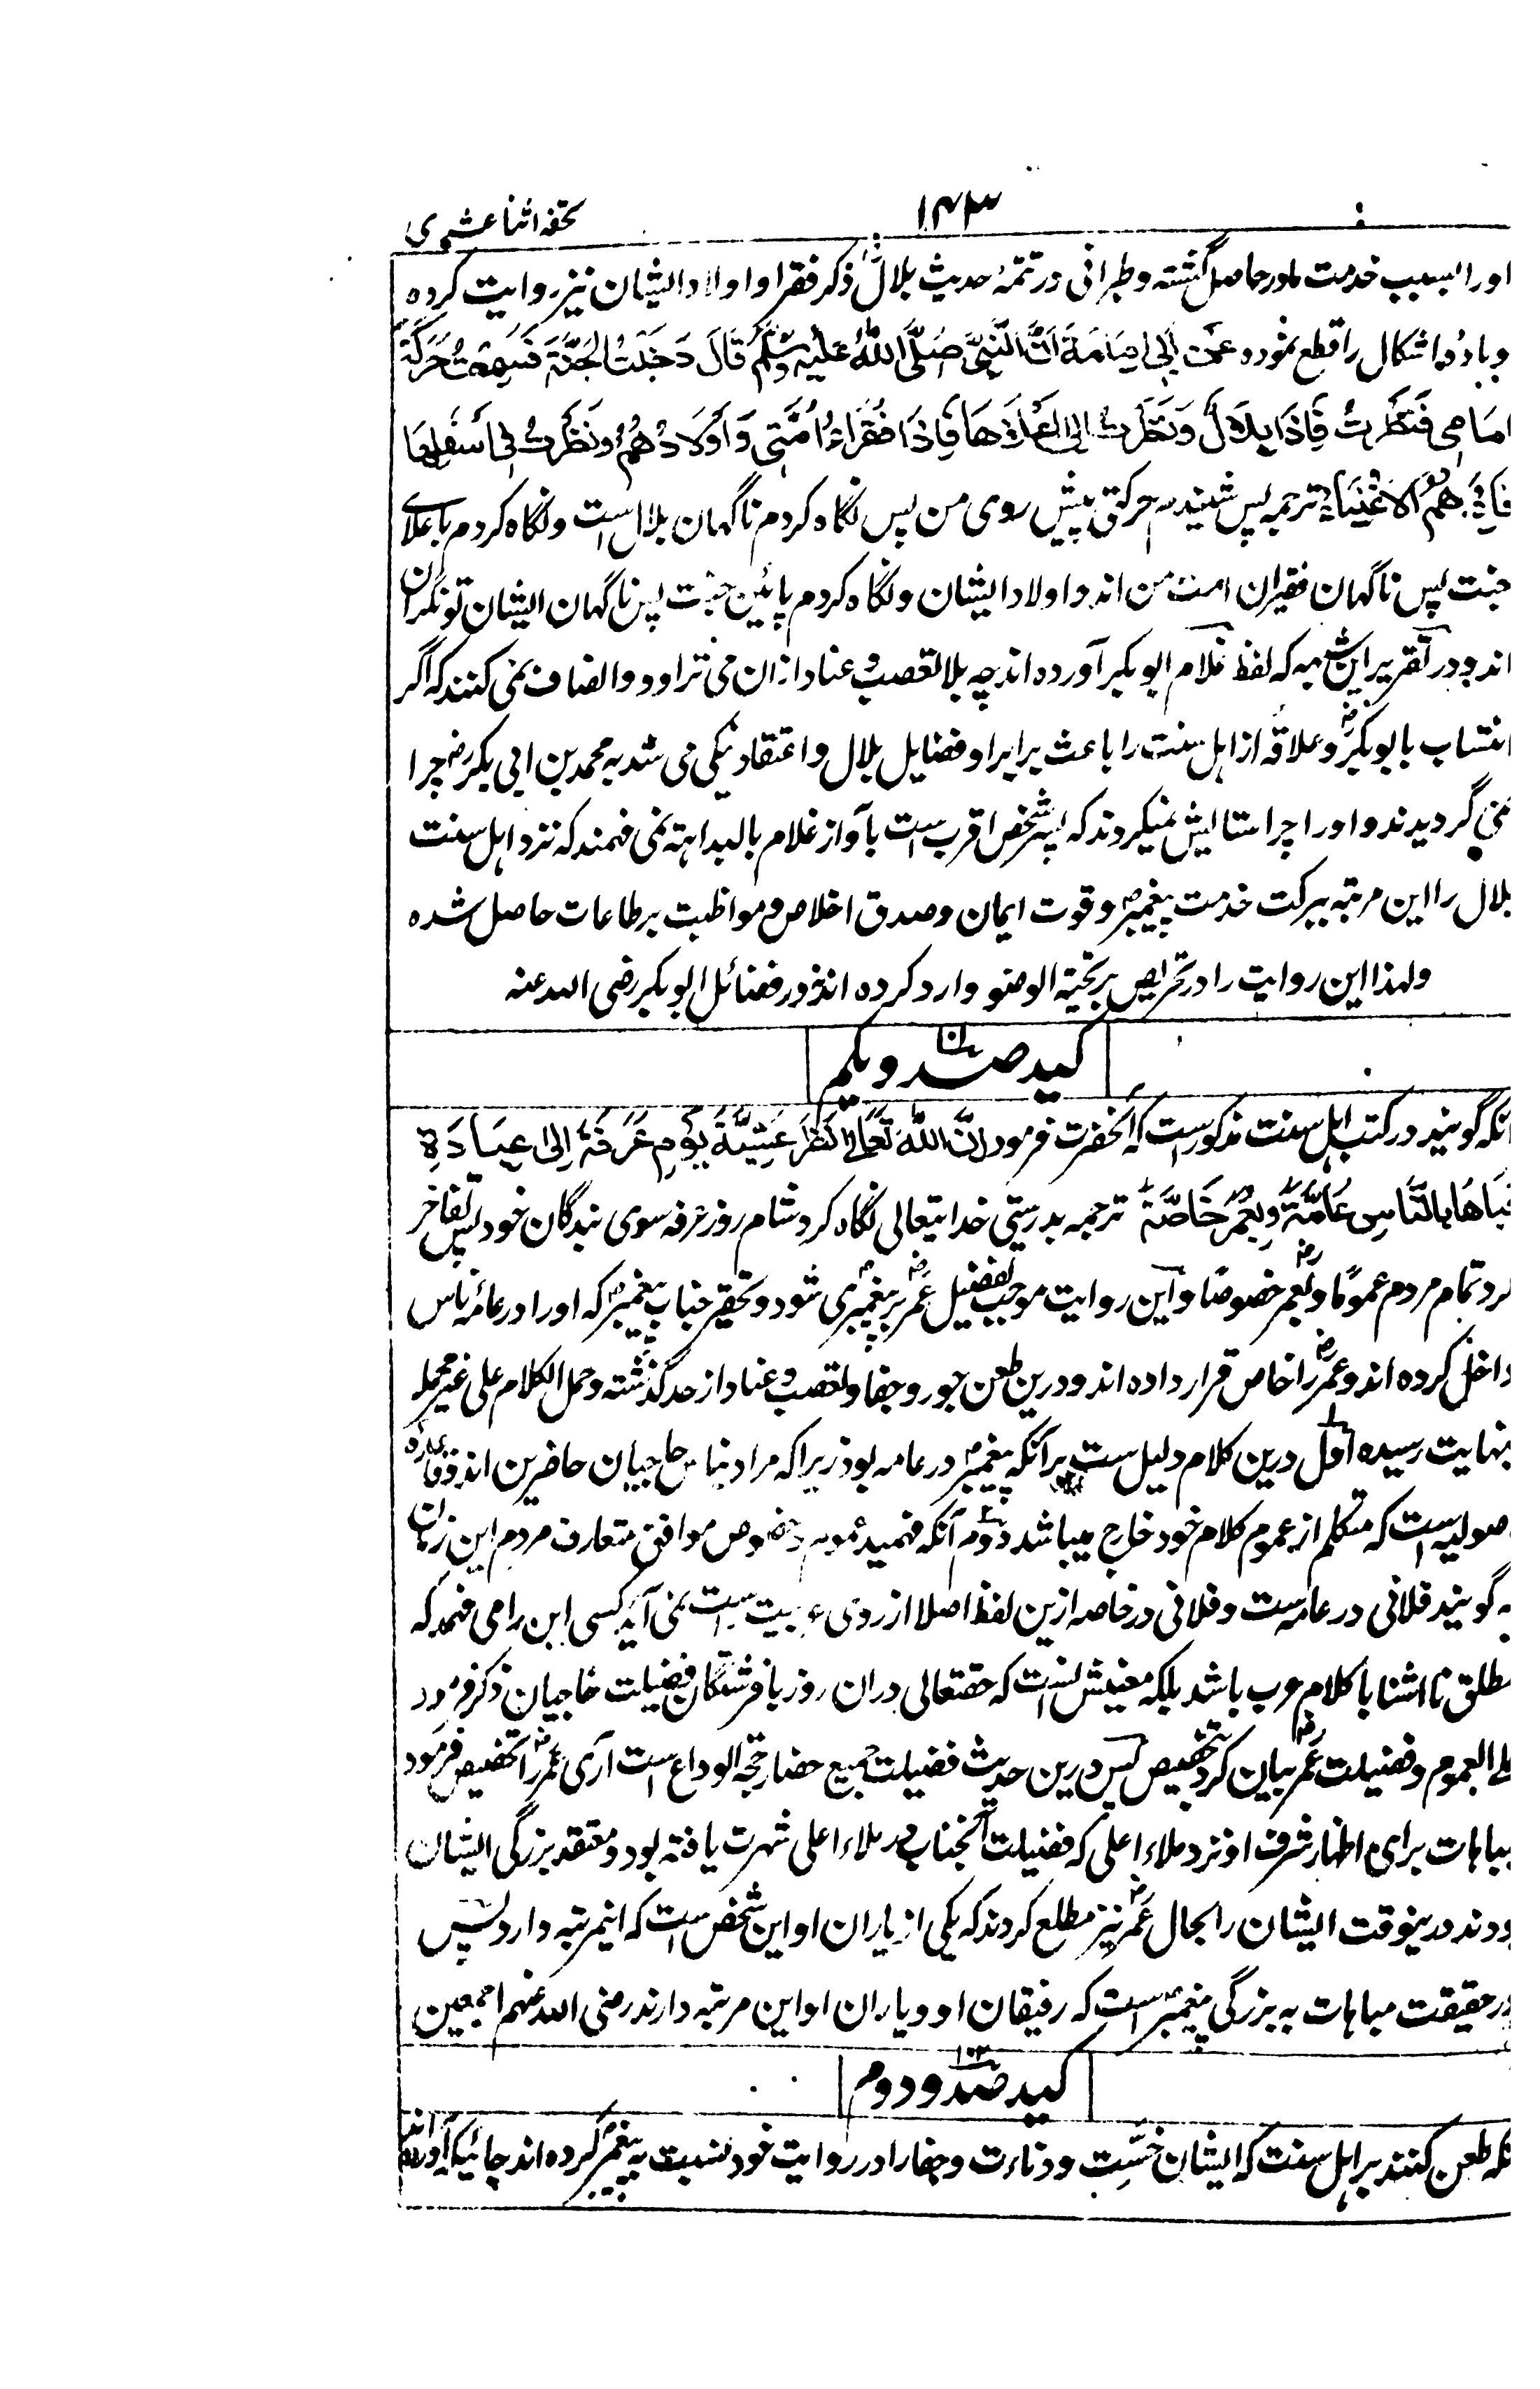 ۱۴۳
تحفه اثنا عشری
اورا بسبب خدمت ماور حاصل گشته و طبرانی در تتمۂ حدیث بلال ذکر فقرا و اولاد ایشان نیز روایت کرده
و اشکال را قطع نموده عَنْ اَبِی اُمَامَةَ اَنَّ النَّبِیَّ صَلَّی اللّٰهُ عَلَیْهِ وَسَلَّمَ قَالَ دَخَلْتُ الْجَنَّةَ فَسَمِعْتُ حَرَكَةً
اَمَامِی فَنَظَرْتُ فَاِذَا بِلَالٌ وَنَظَرْتُ اِلٰی اَعْلَاهَا فَاِذَا فُقَرَاءُ اُمَّتِی وَاَوْلَادُهُمْ وَنَظَرْتُ فِی اَسْفَلِهَا
فَاِذَا هُمُ الْاَغْنِیَاءُ ترجمه پس شنیدم حرکتی پیش روی من پس نگاه کردم ناگهان بلال است و نگاه کردم باعلای
جنت پس ناگهان فقیران امت من اند و اولاد ایشان و نگاه کردم پائین جنت پس ناگهان ایشان تونگران
اند و در تقریر این شبهه که لفظ غلام ابوبکر آورده اند چه بلا تعصب و عناد ازان می تراود و انصاف نمی کنند که اگر
انتساب بابوبکرؓ و علاقه از اهل سنت را باعث بر ایراد فضایل بلال و اعتقاد نیکی می شد به محمد بن ابی بکر رض چرا
نمی گردیدند و اورا چرا ستایش نمیکردند که پسر شخص اقرب است با و از غلام بالبداهة نمی فهمند که نزد اهل سنت
بلال را این مرتبه ببرکت خدمت پیغمبرؐ و قوت ایمان و صدق اخلاص و مواظبت بر طاعات حاصل شده
ولهذا این روایت را در تحریص بر تحیة الوضو وارد کرده اند نه در فضائل ابوبکر رضی الله عنه
کید صد و یکم
آنکه گویند در کتب اهل سنت مذکورست که آنحضرت فرمود اِنَّ اللّٰهَ تَعَالٰی نَظَرَ عَشِیَّةَ یَوْمِ عَرَفَةَ اِلٰی عِبَادِهِ
فَبَاهَا بِالنَّاسِ عَامَّةً وَبِعُمَرَ خَاصَّةً ترجمه بدرستی خدایتعالی نگاه کرد شام روز عرفه سوی بندگان خود پس تفاخر
کرد تمام مردم عموماً و بعمرؓ خصوصاً و این روایت موجب تفضیل عمرؓ بر پیغمبر می شود و تحقیر جناب پیغمبرؐ که اورا در عامۂ ناس
داخل کرده اند و عمرؓ را خاص قرار داده اند و درین طعن جور و جفا و تعصب و عناد از حد گذشته و حمل الکلام علی غیر محمله
بنهایت رسیده اول درین کلام دلیل ست بر آنکه پیغمبرؐ در عامه بود زیراکه مراد حاجیان حاضرین اند و قاعدۂ
اصولیه است که متکلم از عموم کلام خود خارج میباشد دوم آنکه فهمید عموم و خصوص موافق متعارف مردم این زمان
که گویند فلانی در عامه ست و فلانی در خاصه ازین لفظ اصلا از روی عربیت راست نمی آید کسی این را می فهمد که
مطلق نا آشنا با کلام عرب باشد بلکه معنیش اینست که حقتعالی دران روز با فرشتگان فضیلت حاجیان ذکر فرمود
علی العموم و فضیلت عمرؓ بیان کرد بتخصیص پس درین حدیث فضیلت جمیع حضار حجة الوداع است آری عمرؓ را تخصیص فرمود
بمباهات برای اظهار شرف او نزد ملاء اعلی که فضیلت آنجناب در ملاء اعلی شهرت یافته بود و معتقد بزرگی ایشان
بودند درینوقت ایشان را بحال عمرؓ نیز مطلع کردند که یکی از یاران او این شخص ست که اینمرتبه دارد پس
در حقیقت مباهات به بزرگی پیغمبرؐ است که رفیقان او و یاران او این مرتبه دارند رضی الله عنهم اجمعین
کید صد و دوم
آنکه طعن کنند بر اهل سنت که ایشان خسّت و دناءت و جفا را در روایت خود نسبت به پیغمبرؐ کرده اند جائیکه آورده اند